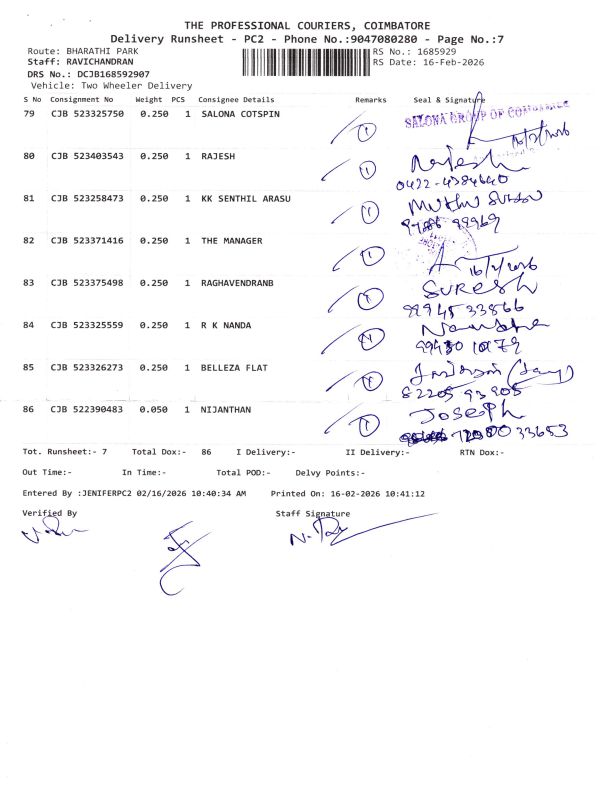 THE PROFESSIONAL COURIERS, COIMBATORE
Delivery Runsheet - PC2 - Phone No.:9047080280 - Page No.:7
Route: BHARATHI PARK RS No.: 1685929
Staff: RAVICHANDRAN RS Date: 16-Feb-2026
DRS No.: DCJB168592907
Vehicle: Two Wheeler Delivery
S No Consignment No Weight PCS Consignee Details Remarks Seal & Signature
79 CJB 523325750 0.250 1 SALONA COTSPIN 1 SALONA GROUP OF 16/2/2026
80 CJB 523403543 0.250 1 RAJESH 1 Rajesh
0422-4384640
81 CJB 523258473 0.250 1 KK SENTHIL ARASU 1 Muthu
99969
82 CJB 523371416 0.250 1 THE MANAGER 1
16/2/2026
83 CJB 523375498 0.250 1 RAGHAVENDRANB 1 SURESH
99945 33866
84 CJB 523325559 0.250 1 R K NANDA 1
99430 10179
85 CJB 523326273 0.250 1 BELLEZA FLAT 1
82205 93905
86 CJB 522390483 0.050 1 NIJANTHAN 1 Joseph
33653
Tot. Runsheet:- 7 Total Dox:- 86 I Delivery:- II Delivery:- RTN Dox:-
Out Time:- In Time:- Total POD:- Delvy Points:-
Entered By :JENIFERPC2 02/16/2026 10:40:34 AM Printed On: 16-02-2026 10:41:12
Verified By Staff Signature